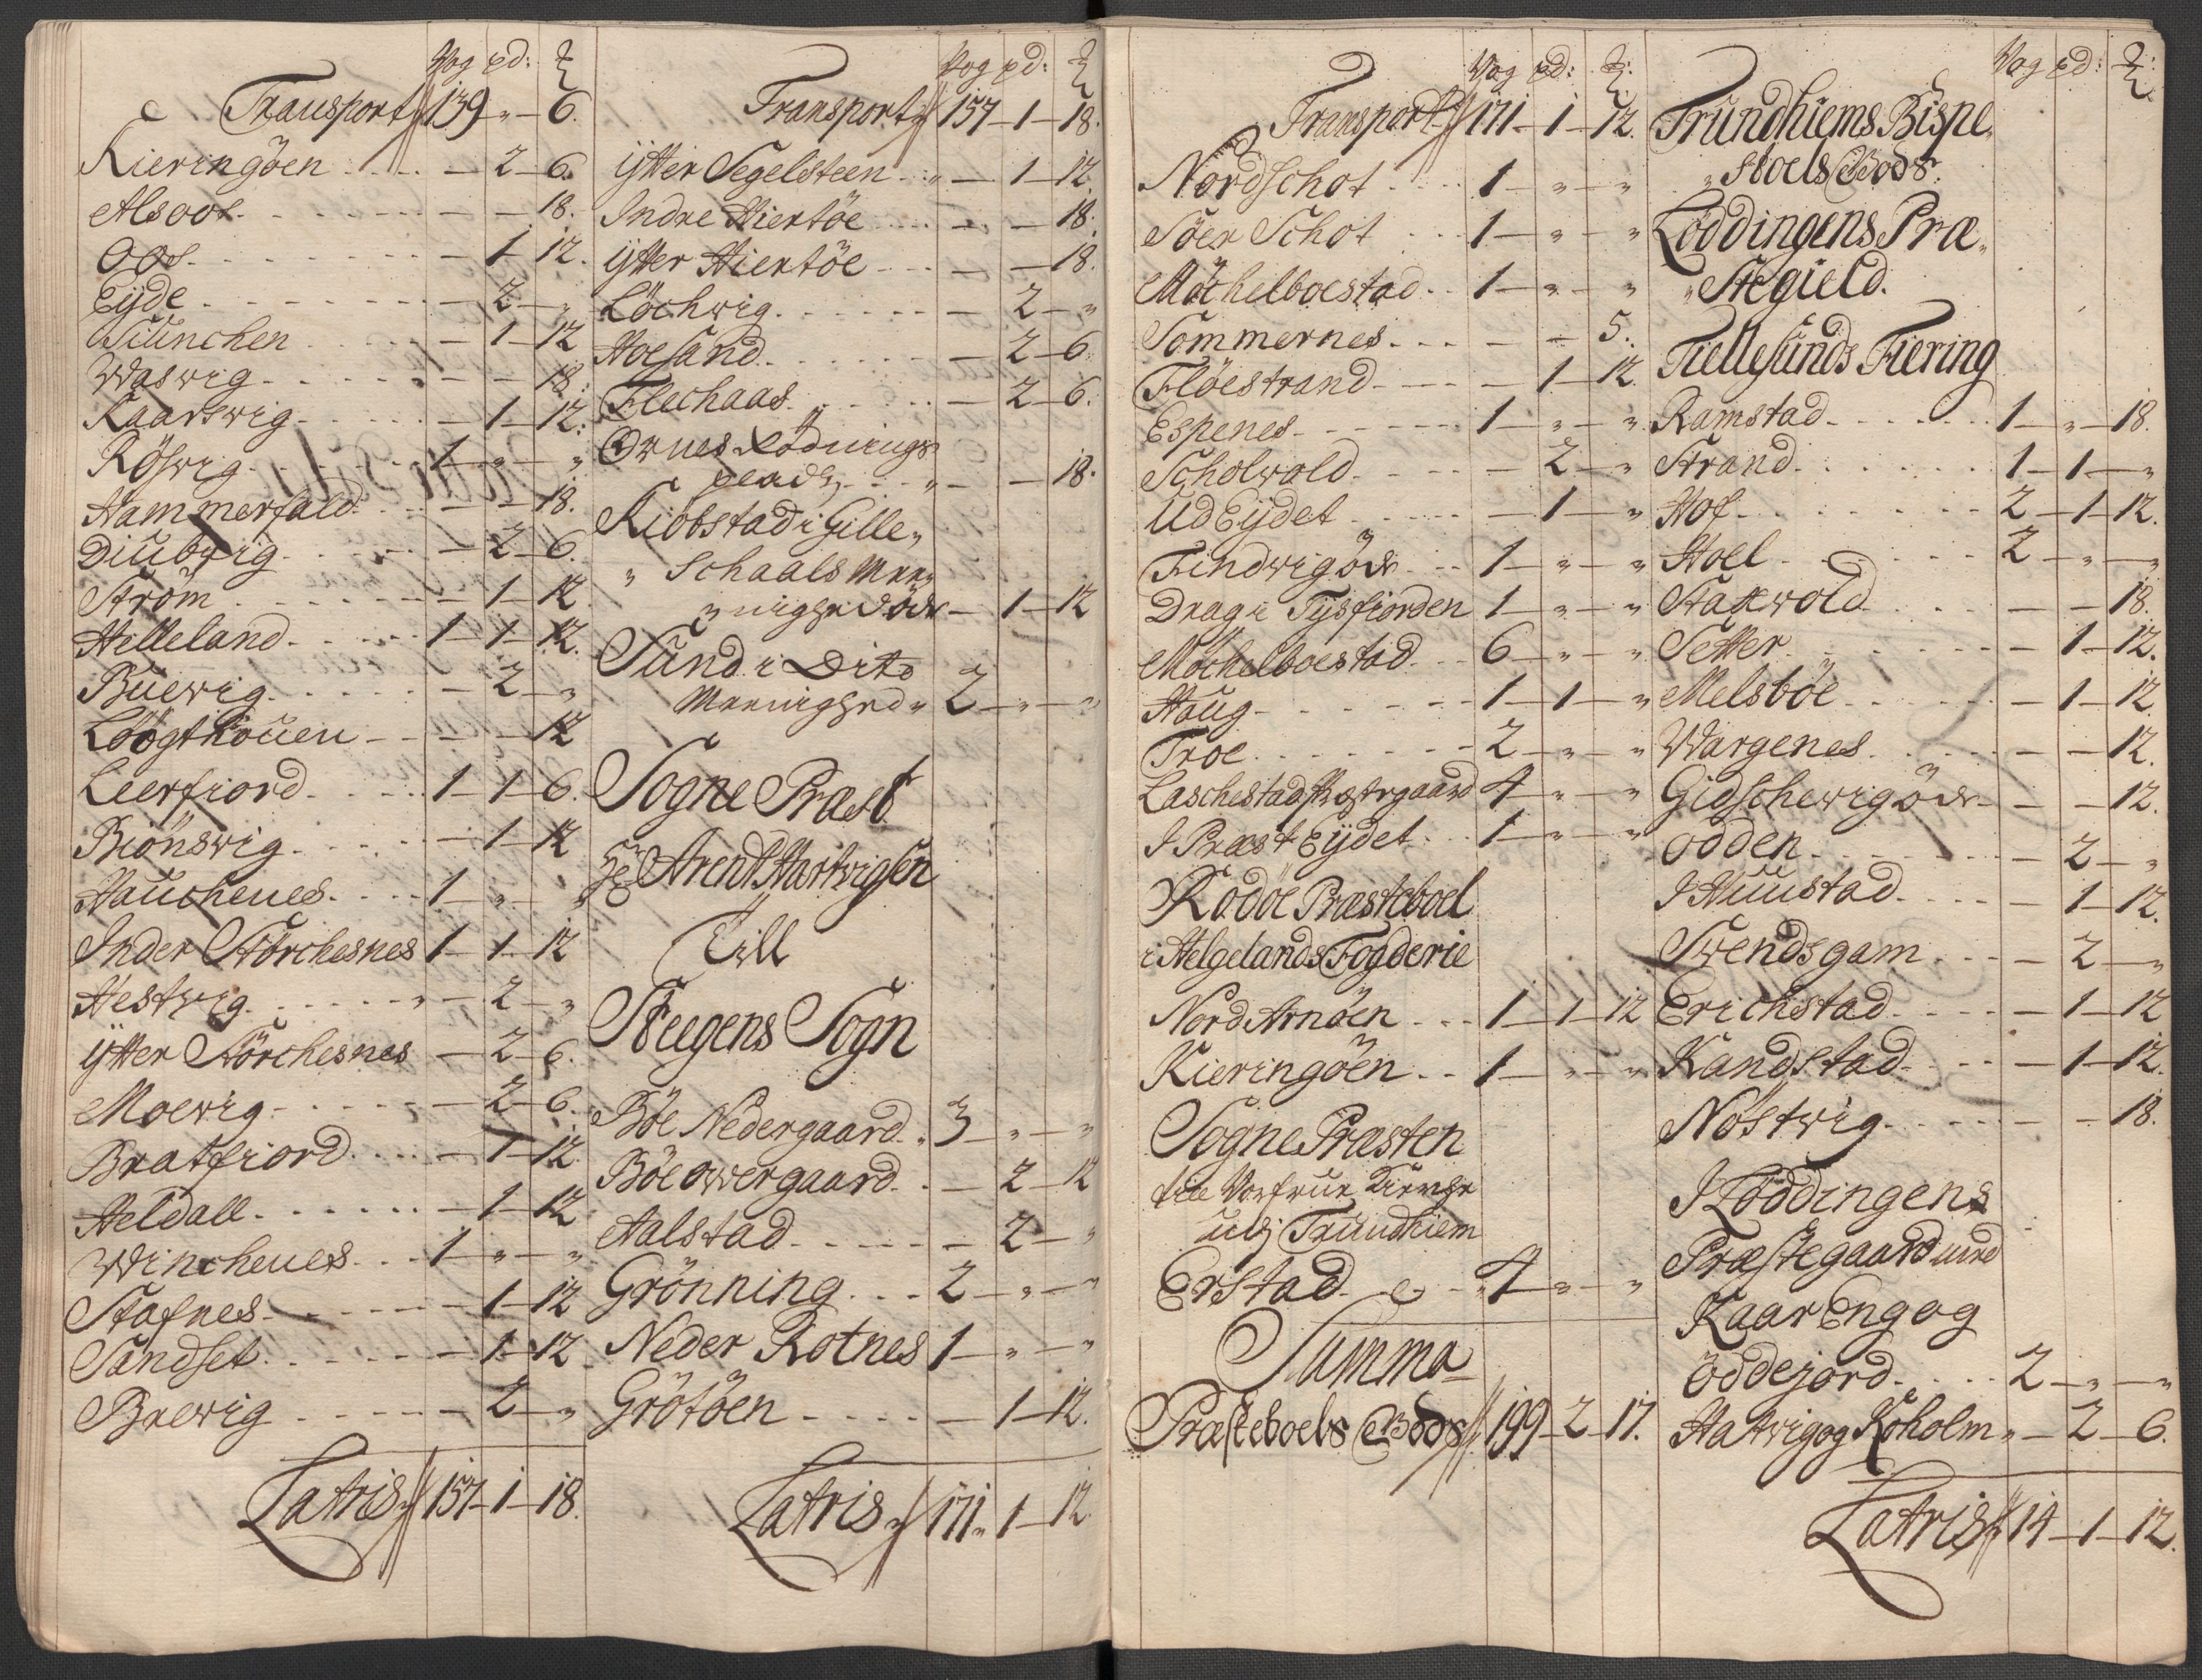 Vog pd: ℔
Transport 139 - „ - 6.
Kieringöen - 2 - 6.
Alsoos - - 18.
Oos - 1 - 12.
Eijde - 2 - „
Siünchen - 1 - 12
Waswig - - 18.
Kaarswig - 1 - 12.
Röswig 1 - „ - „
Hammerfald - - 18.
Diübwig - 2 - 6.
Ström - 1 - 12.
Helleland 1 - 1 - 12.
Buewig - 2 - „
Löögthouen - - 12
Leerfiord 1 - 1 - 6.
Biönswig - 1 - 12
Hauchenes 1 - „ - „
Inder Störchesnes 1 - 1 - 12
Hestwig - 2 - „
ÿtter Störchesnes - 2 - 6.
Moewig - 2 - 6.
Bratfiord - 1 - 12
Heldall - 1 - 12
Winchenes 1 - „ - „
Stafnes - 1 - 12
Sandset - 1 - 12
Brewig - 2 - „
Latris 157 - 1 - 18.
Vog pd: ℔
Transport 157 - 1 - 18.
ÿtter Segelsteen „ - 1 - 12.
Indre Hiertöe - - 18.
ÿtter Hiertöe - - 18.
Löchwig - 2 - „
Hoesand - 2 - 6.
Flechaas - 2 - 6.
Ornes Rödnings
pladz „ - - 18.
Kiobstad i Gille„
„ Schaals Men„
„nighe Böde - 1 - 12
Sund i Dito
Menighed „ 2 - „ - „
Sogne Præst
Hr Arent Hartvigsen
Till
Stegens Sogn
Böe Nedergaard „ 3 - „ - „
Böe owergaard - 2 - 12
Aalstad - 2 - „
Grönning 2 - „ - „
Neder Rotnes 1 - „ - „
Grötöen - 1 - 12.
Latris 171 „ 1 - 12.
Vog pd: ℔
Transport 171 - 1 - 12.
Nordschot 1 - „ - „
Söer Schot 1 - „ - „
Möchelboestad 1 - „ - „
Sommernes - - 5.
Flöestrand - 1 - 12
Espenes 1 - „ - „
Scholwold - 2 - „
Ud Eijdet - 1 - „
Findwig öde 1 - „ - „
Drag i Tijsfiorden 1 - „ - „
Möchelboestad 6 - „ - „
Haug 1 - 1 - „
Troe 2 - „ - „
Laschestad Præstegaard 4 - „ - „
I Præst Eijdet 1 - „ - „
Rödöe Præsteboel
i Helgelands Fogderie
Nord Arnöen 1 - 1 - 12
Kieringöen 1 - „ - „
Sogne Præsten
til Vorfrue Kirche
udj Trundhiem
Erstad 4 - „ - „
Summa
Præsteboels Gods 199 - 2 - 17.
Vog pd: ℔
Trundhiems Bispe„
„Stoels Gods.
Löddingens Præ„
„Stegield.
Tiellesunds Fiering
Ramstad 1 - „ - 18.
Strand 1 - 1 - „
Hof 2 - 1 - 12.
Hoel 2 - „ - „
Stakwold - - 18.
Setter - 1 - 12.
Melsböe - 1 - 12.
Wargenes - - 12.
Gidschewig öde - - 12.
Odden - 2 - „
I Huustad - 1 - 12.
Swendsgam - 2 - „
Erichstad - 1 - 12
Kandstad - 1 - 12.
Nöstwig - - 18.
I Löddingens
Præstegaard med
Kaar Eng og
Öddejord 2 - „ - „
Hatwig og Koholm „ - 2 - 6.
Latris 14 - 1 - 12.